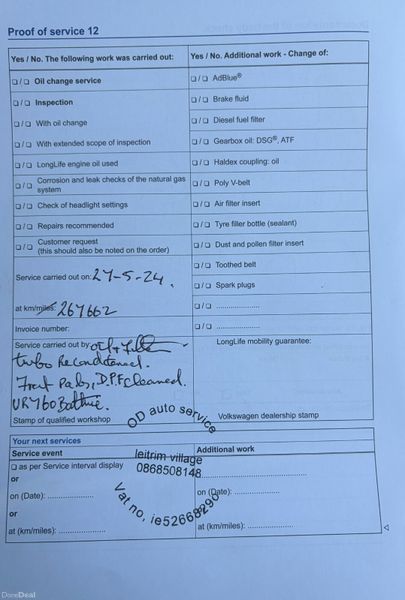 Proof of service 12
Yes / No. The following work was carried out:
❏ / ❏ Oil change service
❏ / ❏ Inspection
❏ / ❏ With oil change
❏ / ❏ With extended scope of inspection
❏ / ❏ LongLife engine oil used
❏ / ❏ Corrosion and leak checks of the natural gas
system
❏ / ❏ Check of headlight settings
❏ / ❏ Repairs recommended
❏ / ❏ Customer request
(this should also be noted on the order)
Service carried out on: 27-5-24.
at km/miles: 267662
Invoice number:
Service carried out by oil + filter
turbo Reconditioned.
Front Pads, D.P.F cleaned.
Stamp of qualified workshop
Yes / No. Additional work - Change of:
❏ / ❏ AdBlue®
❏ / ❏ Brake fluid
❏ / ❏ Diesel fuel filter
❏ / ❏ Gearbox oil: DSG®, ATF
❏ / ❏ Haldex coupling: oil
❏ / ❏ Poly V-belt
❏ / ❏ Air filter insert
❏ / ❏ Tyre filler bottle (sealant)
❏ / ❏ Dust and pollen filter insert
❏ / ❏ Toothed belt
❏ / ❏ Spark plugs
❏ / ❏ ....................
❏ / ❏ ....................
LongLife mobility guarantee:
Volkswagen dealership stamp
OD auto service
leitrim village
0868508148
Vat no, ie5266829OO
Your next services
Service event
❏ as per Service interval display
or
on (Date): ....................
or
at (km/miles): ....................
Additional work
....................
on (Date): ....................
at (km/miles): ....................
DoneDeal